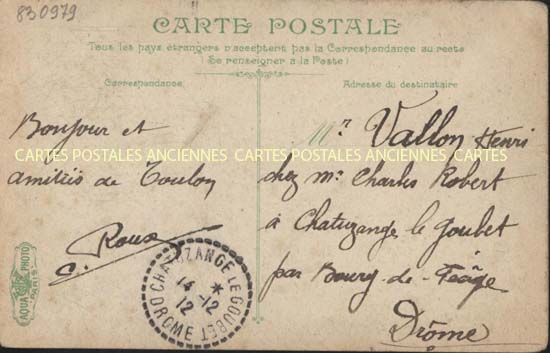 830979
CARTE POSTALE
Tous les pays étrangers n'acceptent pas la Correspondance au recto
(Se renseigner à la Poste)
Correspondance
Adresse du destinataire
Bonjour et
amitiés de Toulon
C. Roux
Mr Vallon Henri
chez Mr Charles Robert
à Chatuzange le Goubet
par Bourg-de-Péage
Drôme
CARTES POSTALES ANCIENNES CARTES POSTALES ANCIENNES CARTES POSTALES ANCIENNES
CHATUZANGE LE GOUBET
14-12
12
DROME
AQUA PHOTO
PARIS